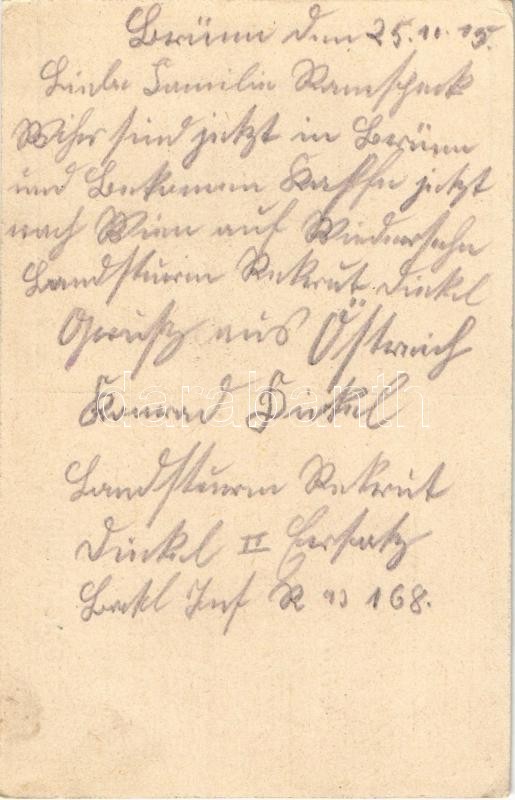 Brünn den 25.11.15.
Liebe Familie Ramspeck
Wihr sind jetzt in Brünn
und Bekomen Kaffe jetzt
nach Wien auf Wiedersehn
Landsturm Rekrut Dinkel
Grüsz aus Östreich
Konrad Dinkel
Landsturm Rekrut
Dinkel II Ersatz
Batl Inf R 168.
darabanth